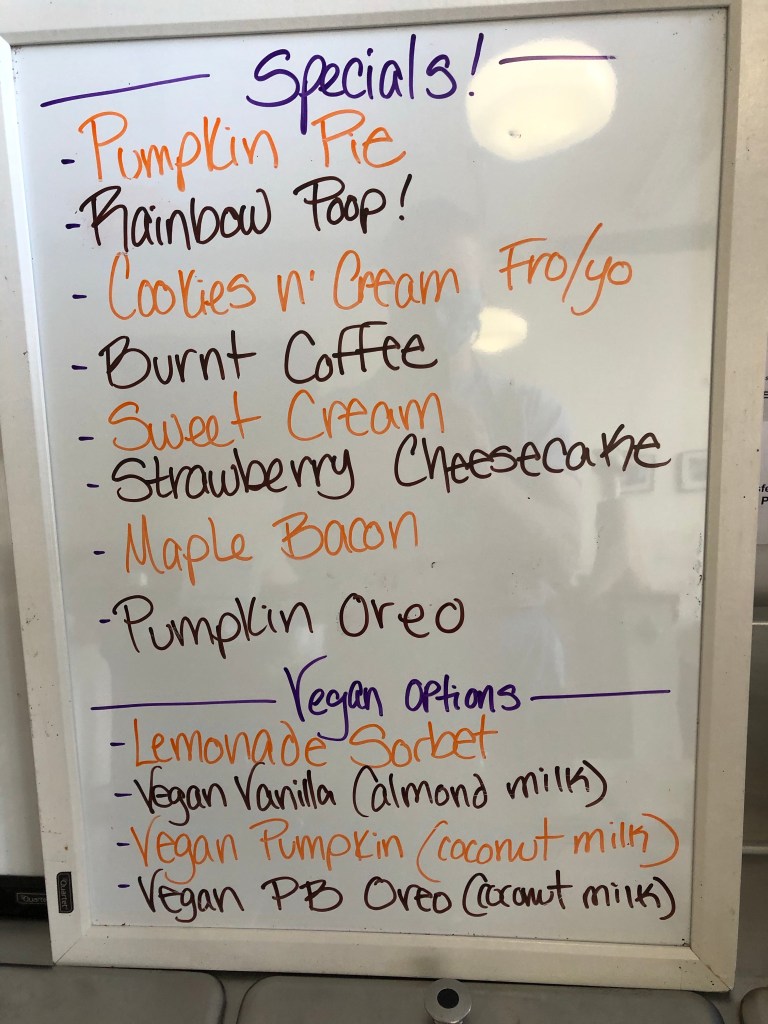 Specials!
- Pumpkin Pie
- Rainbow Poop!
- Cookies n' Cream Fro/yo
- Burnt Coffee
- Sweet Cream
- Strawberry Cheesecake
- Maple Bacon
- Pumpkin Oreo
Vegan Options
- Lemonade Sorbet
- Vegan Vanilla (almond milk)
- Vegan Pumpkin (coconut milk)
- Vegan PB Oreo (coconut milk)
Quartet